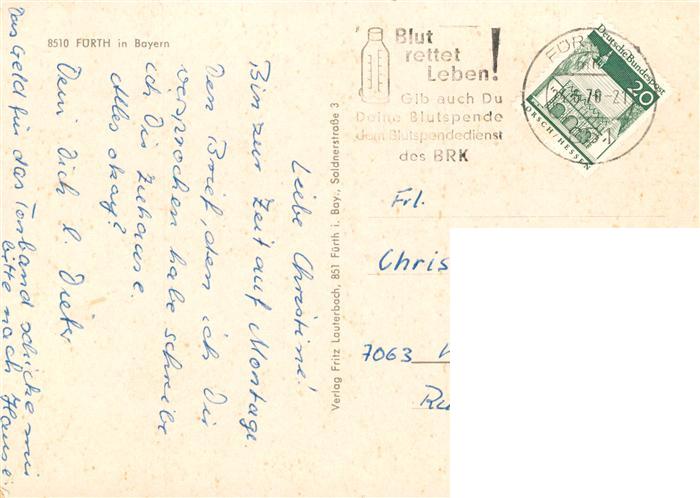 8510 FÜRTH in Bayern
Liebe Christine!
Bin zur Zeit auf Montage.
Den Brief, den ich Dir
versprochen habe schreibe
ich Dir zuhause.
Alles okay?
Dein Dich l. Dieter
Das Geld für das Tonband schicke mir
bitte nach Hause!
Verlag Fritz Lauterbach, 851 Fürth i. Bay., Soldnerstraße 3
Blut
rettet
Leben!
Gib auch Du
Deine Blutspende
dem Blutspendedienst
des BRK
FÜR
70-21
Deutsche Bundespost
20
LORSCH/HESSEN
Frl.
Chris
7063